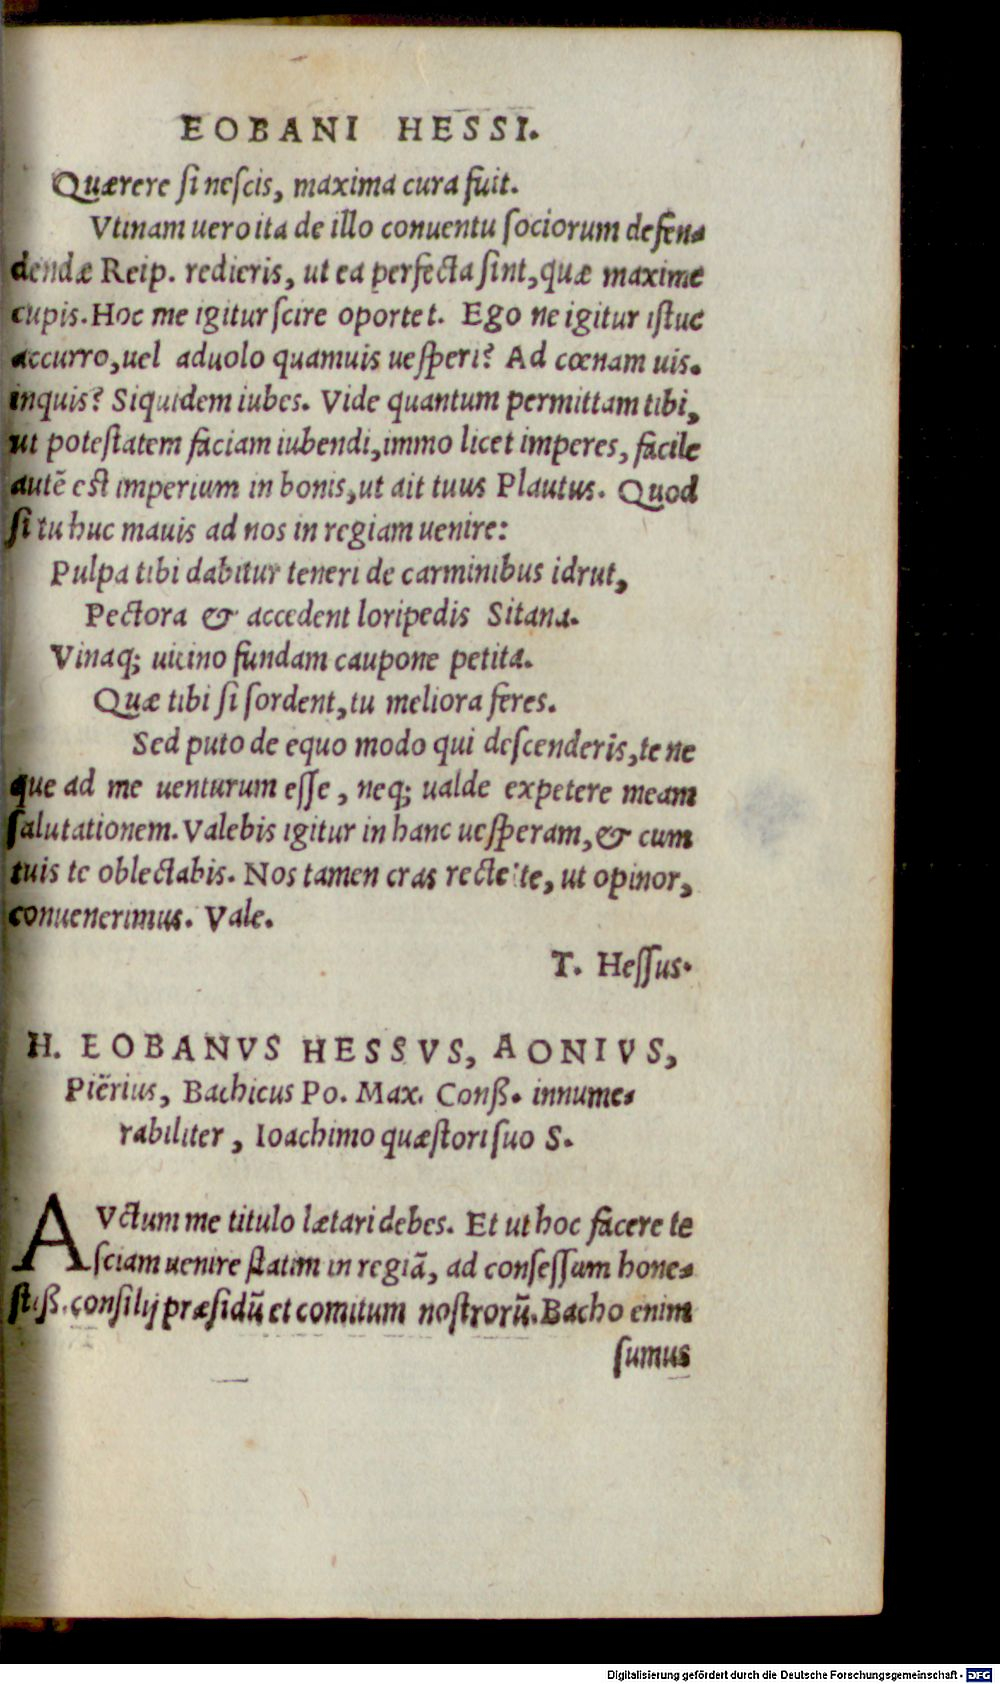 EOBANI HESSI.
Quærere si nescis, maxima cura fuit.
Vtinam uero ita de illo conuentu sociorum defen-
dendæ Reip. redieris, ut ea perfecta sint, quæ maxime
cupis. Hoc me igitur scire oportet. Ego ne igitur istuc
accurro, uel aduolo quamuis uesperi? Ad cœnam uis.
inquis? Siquidem iubes. Vide quantum permittam tibi,
ut potestatem faciam iubendi, immo licet imperes, facile
autē est imperium in bonis, ut ait tuus Plautus. Quod
si tu huc mauis ad nos in regiam uenire:
Pulpa tibi dabitur teneri de carminibus idrut,
Pectora & accedent loripedis Sitana.
Vinaq; uicino fundam caupone petita.
Quæ tibi si sordent, tu meliora feres.
Sed puto de equo modo qui descenderis, te ne
que ad me uenturum esse, neq; ualde expetere meam
salutationem. Valebis igitur in hanc uesperam, & cum
tuis te oblectabis. Nos tamen cras recte ite, ut opinor,
conuenerimus. Vale.
T. Hessus.
H. EOBANVS HESSVS, AONIVS,
Piërius, Bachicus Po. Max. Conß. innume-
rabiliter, Ioachimo quæstori suo S.
AVctum me titulo lætari debes. Et ut hoc facere te
sciam uenire statim in regiā, ad consessum hone-
stiß. consilij præsidū et comitum nostrorū. Bacho enim
sumus
Digitalisierung gefördert durch die Deutsche Forschungsgemeinschaft - DFG